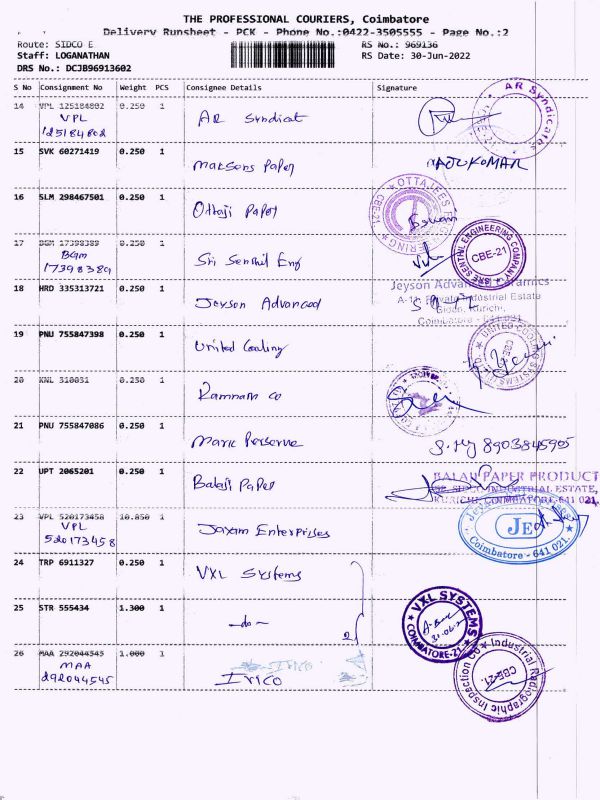 THE PROFESSIONAL COURIERS, Coimbatore
Delivery Runsheet - PCK - Phone No.:0422-3505555 - Page No.:2
Route: SIDCO E RS No.: 969136
Staff: LOGANATHAN RS Date: 30-Jun-2022
DRS No.: DCJB96913602
S No Consignment No Weight PCS Consignee Details Signature
14 VPL 125184802 0.250 1
VPL AR Syndicat
125184802
AR Syndicate
15 SVK 60271419 0.250 1
Maksons Paper RAJKUMAR
16 SLM 298467501 0.250 1
Ottaji Paper
OTTAJEES ENGINEERING CBE-21
17 BGM 17398389 0.250 1
BGM Sri Senthil Eng
17398389
SRE SENTHIL ENGINEERING COMPANY CBE-21
18 HRD 335313721 0.250 1
Jeyson Advanced
Jeyson Advanced Ceramics
A-11, Private Industrial Estate
Sidco, Kurichi,
Coimbatore - 641 021
19 PNU 755847398 0.250 1
United Cooling
UNITED COOLING SYSTEMS CBE-21
20 KNL 310031 0.250 1
Ramnam Co
21 PNU 755847086 0.250 1
Maric Perserve 8903845905
22 UPT 2065201 0.250 1
Balaji Paper
BALAJI PAPER PRODUCT
INDUSTRIAL ESTATE,
KURICHI, COIMBATORE, 641 021.
23 VPL 520173458 10.850 1
VPL Jayam Enterprises
520173458
JE
Coimbatore - 641 021.
24 TRP 6911327 0.250 1
VXL Systems
25 STR 555434 1.300 1
-do- 2
VXL SYSTEMS COIMBATORE-21
26 MAA 292044545 1.000 1
MAA IRICO
292044545 IRICO
Industrial Radiographic Inspection Co CBE-21